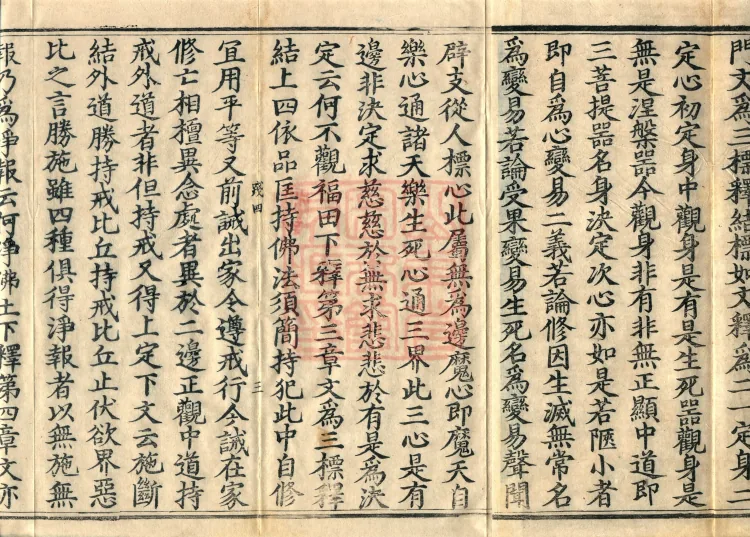 門文為三標釋結標如文釋為二一定身二
定心初定身中觀身是有是生死器觀身是
無是涅槃器今觀身非有非無正顯中道即
三菩提器名身決定次心亦如是若陿小者
即自為心變易二義若論修因生滅無常名
為變易若論受果變易生死名為變易聲聞
辟支從人標心此屬無為邊魔心即魔天自
樂心通諸天樂生死心通三界此三心是有
邊非決定求慈慈於無求悲悲於有是為決
定云何不觀福田下釋第三章文為三標釋
結上四依品匡持佛法須簡持犯此中自修
踐四 三
宜用平等又前誡出家令遵戒行今誡在家
修亡相檀異念處者異於二邊正觀中道持
戒外道者非但持戒又得上定下文云施斷
結外道勝持戒比丘持戒比丘止伏欲界惡
比之言勝施雖四種俱得淨報者以無施無
報乃為淨報云何淨佛土下釋第四章文亦